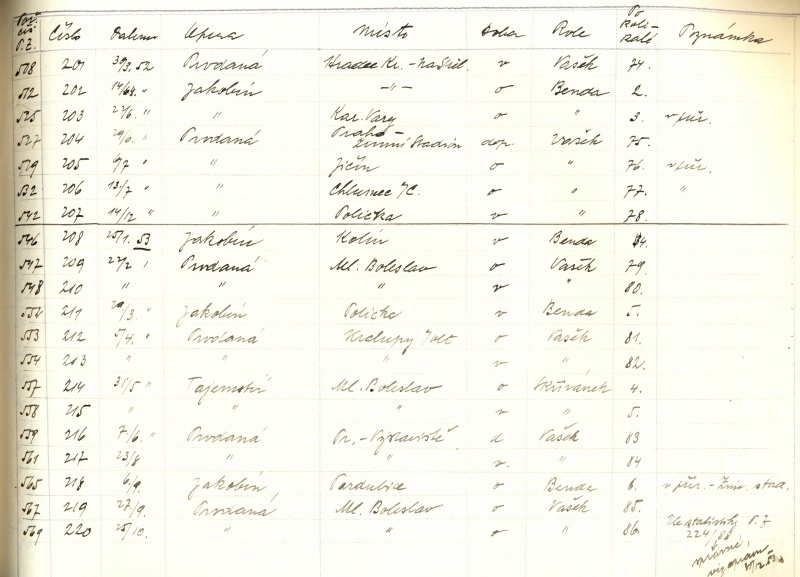 Poř. čís. P.Z. Číslo Datum Opera Místo Doba Role Po kolikáté Poznámka
508 201 30/3. 52 Prodaná Hradec Kr. - v Vašek 74.
512 202 14/6. " Jakobín -"- o Benda 2.
525 203 22/6. " " Kar. Vary o " 3. v přír.
527 204 29/6. " Prodaná Praha - Zimní Stadion dop. Vašek 75.
529 205 6/7 " " Jičín o " 76. v přír.
532 206 13/7 " " Chlumec n/C. o " 77. "
542 207 14/12 " " Polička v " 78.
546 208 25/1. 53 Jakobín Kolín v Benda 4.
547 209 22/2 " Prodaná Ml. Boleslav o Vašek 79.
548 210 " " " v " 80.
552 211 29/3. " Jakobín Polička v Benda 5.
553 212 5/4. " Prodaná Kralupy n/Vlt o Vašek 81.
554 213 " " " v " 82.
557 214 31/5. " Tajemství Ml. Boleslav o Skřivánek 4.
558 215 " " " v " 5.
559 216 7/6. " Prodaná Pr. - Výstaviště d Vašek 83
561 217 23/8 " " v. " 84
565 218 6/9. Jakobín Pardubice o Benda 6. v přír. - Zim. stad.
567 219 27/9. Prodaná Ml. Boleslav o Vašek 85.
569 220 25/10. " " o " 86.
Dle statistiky P.Z
224/88
správné,